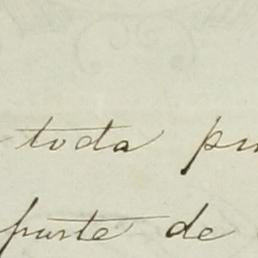 toda
parte de